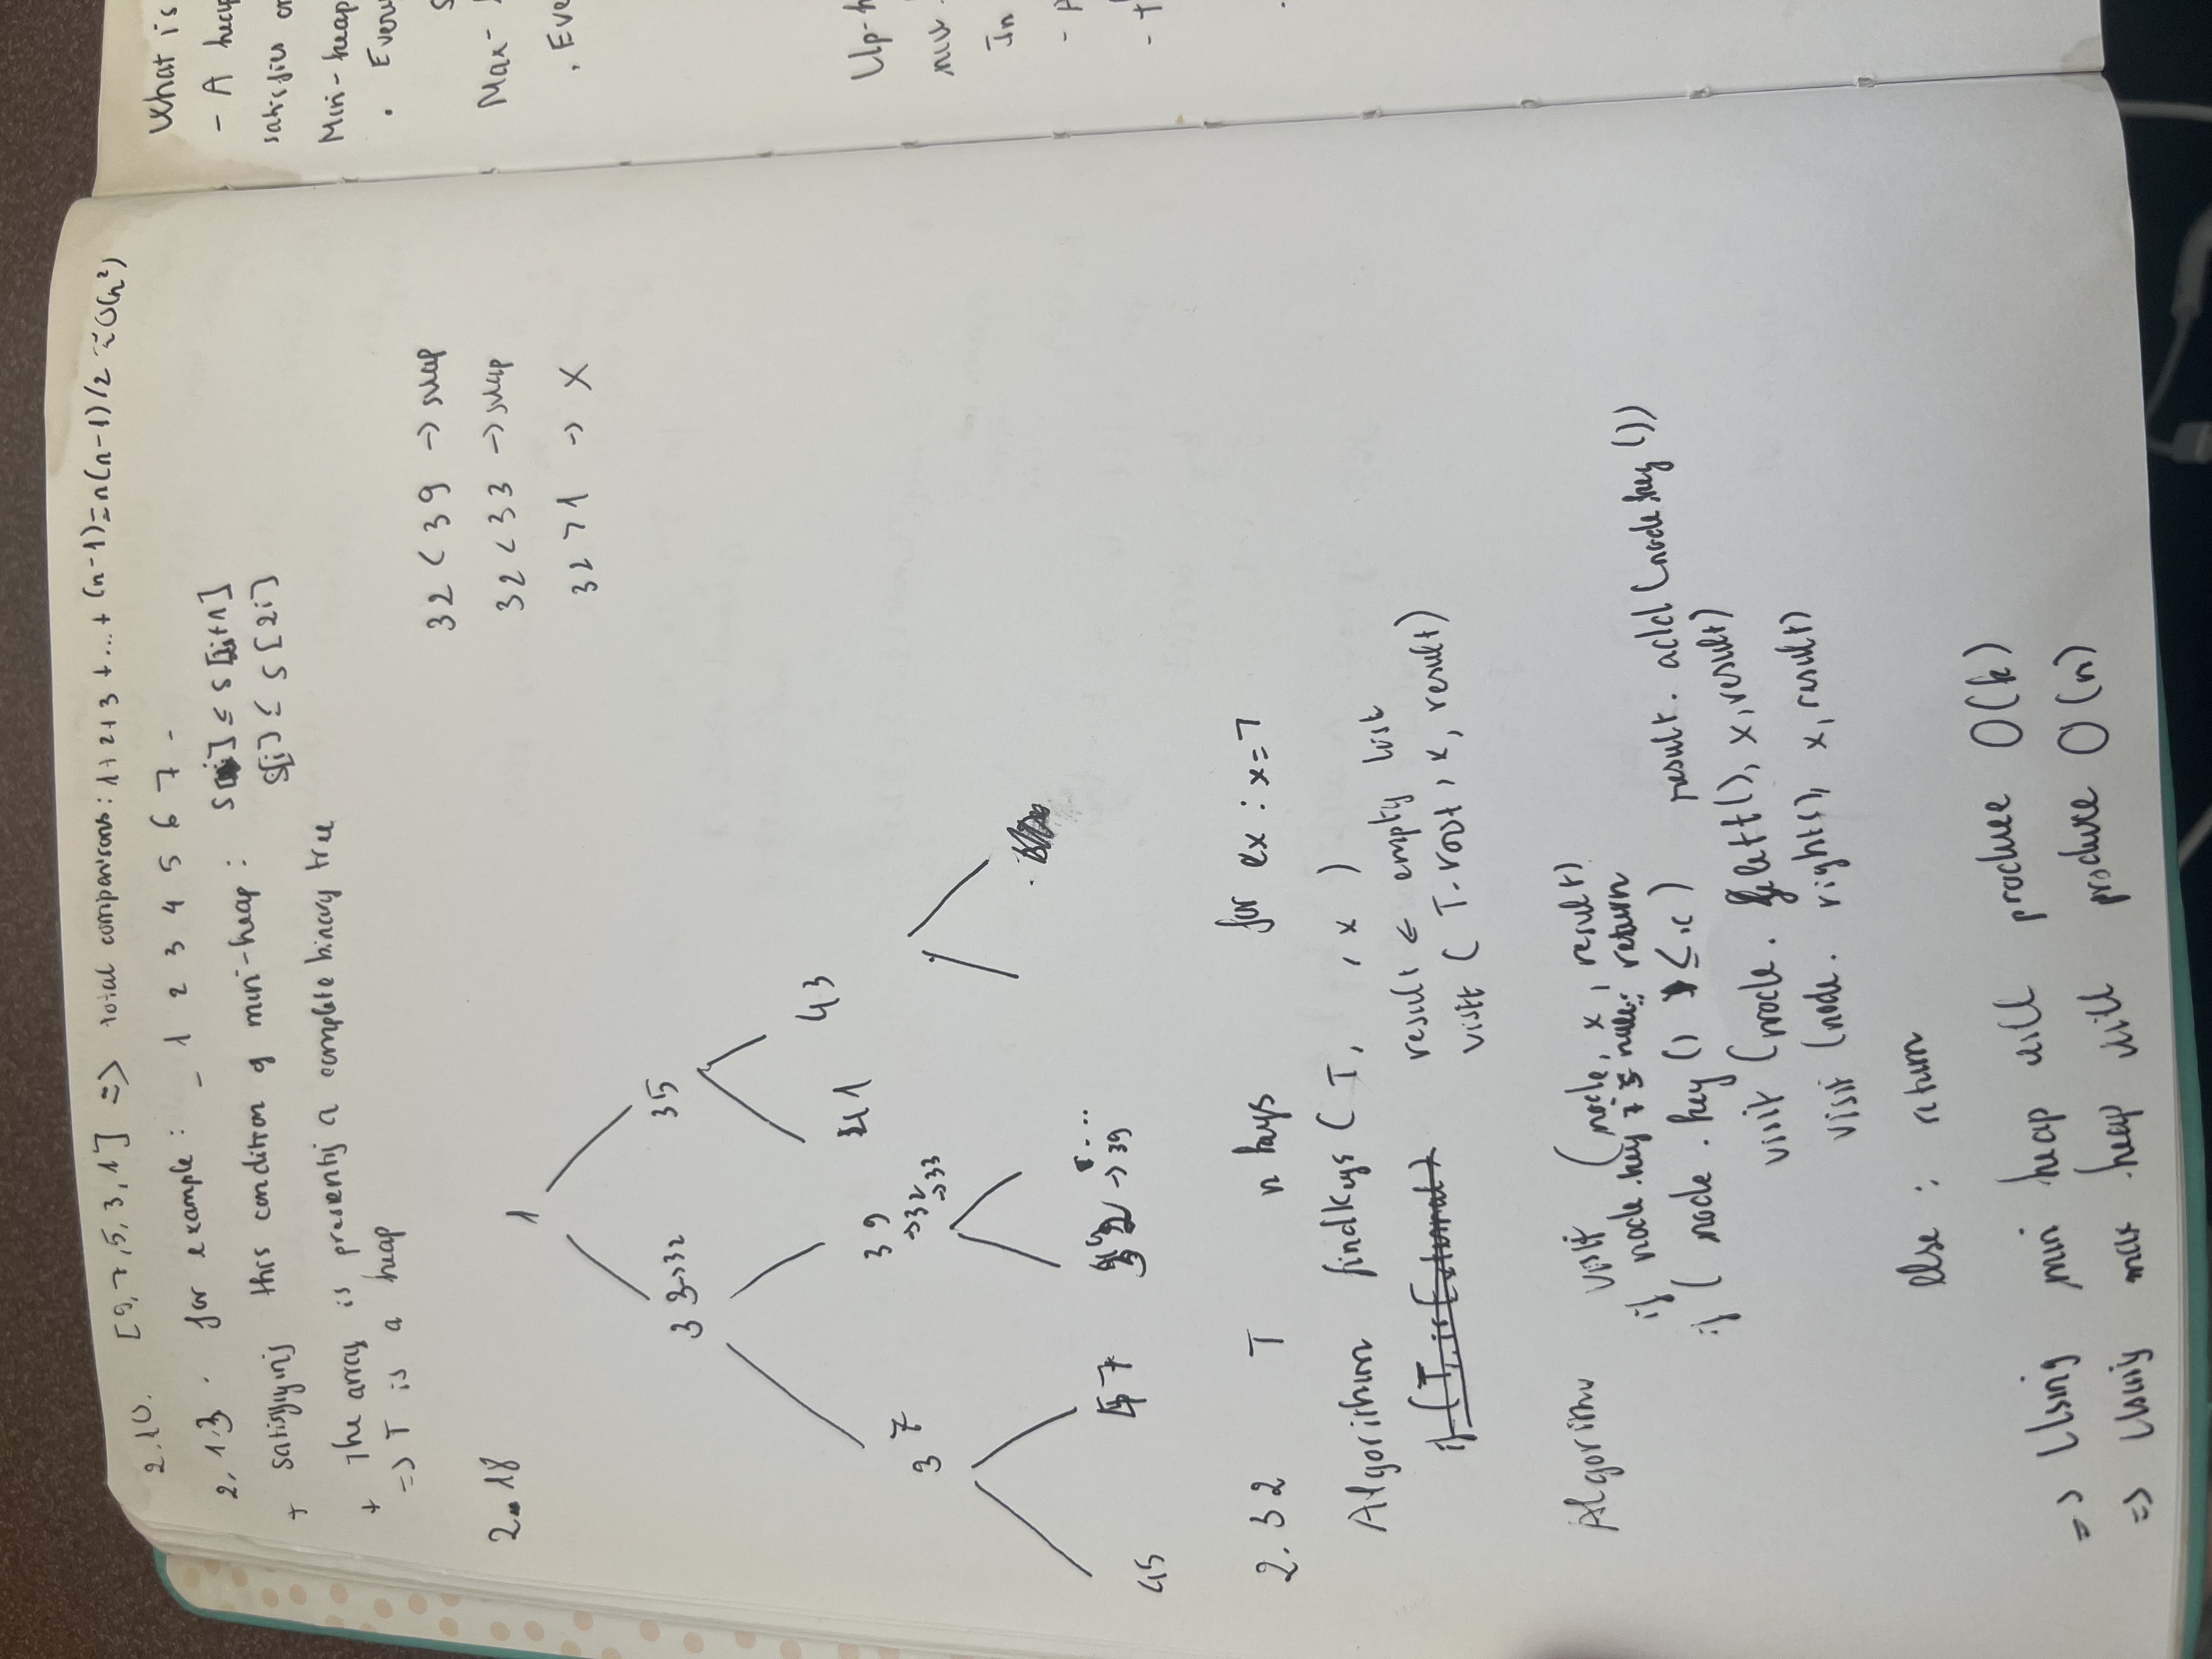 2.10. [9,7,5,3,1] => total comparisons: 1+2+3+...+(n-1)=n(n-1)/2 ≈O(n²)
2.1.3. for example: - 1 2 3 4 5 6 7 -
+ satisfying this condition of min-heap: S[i] ≤ S[2i+1]
S[i] ≤ S[2i]
+ The array is presenting a complete binary tree
=> T is a heap
32 < 39 -> swap
32 < 33 -> swap
32 > 1 -> X
2.18
1
33->32 35
37 39 41 43
->32
->33
45 47 32 ->39 ...
2.32 T n keys for ex: x=7
Algorithm findKeys (T, , x )
if (T. isExternal)
result ← empty list
visit ( T.root, x, result)
Algorithm visit (node, x, result)
if node.key is null: return
if ( node.key() ≤ x) result.add(node.key())
visit (node. left(), x, result)
visit (node. right(), x, result)
else : return
=> Using min heap will produce O(k)
=> Using max heap will produce O(n)
What is
- A heap
satisfies
Min-heap
.
Max-
.
- A